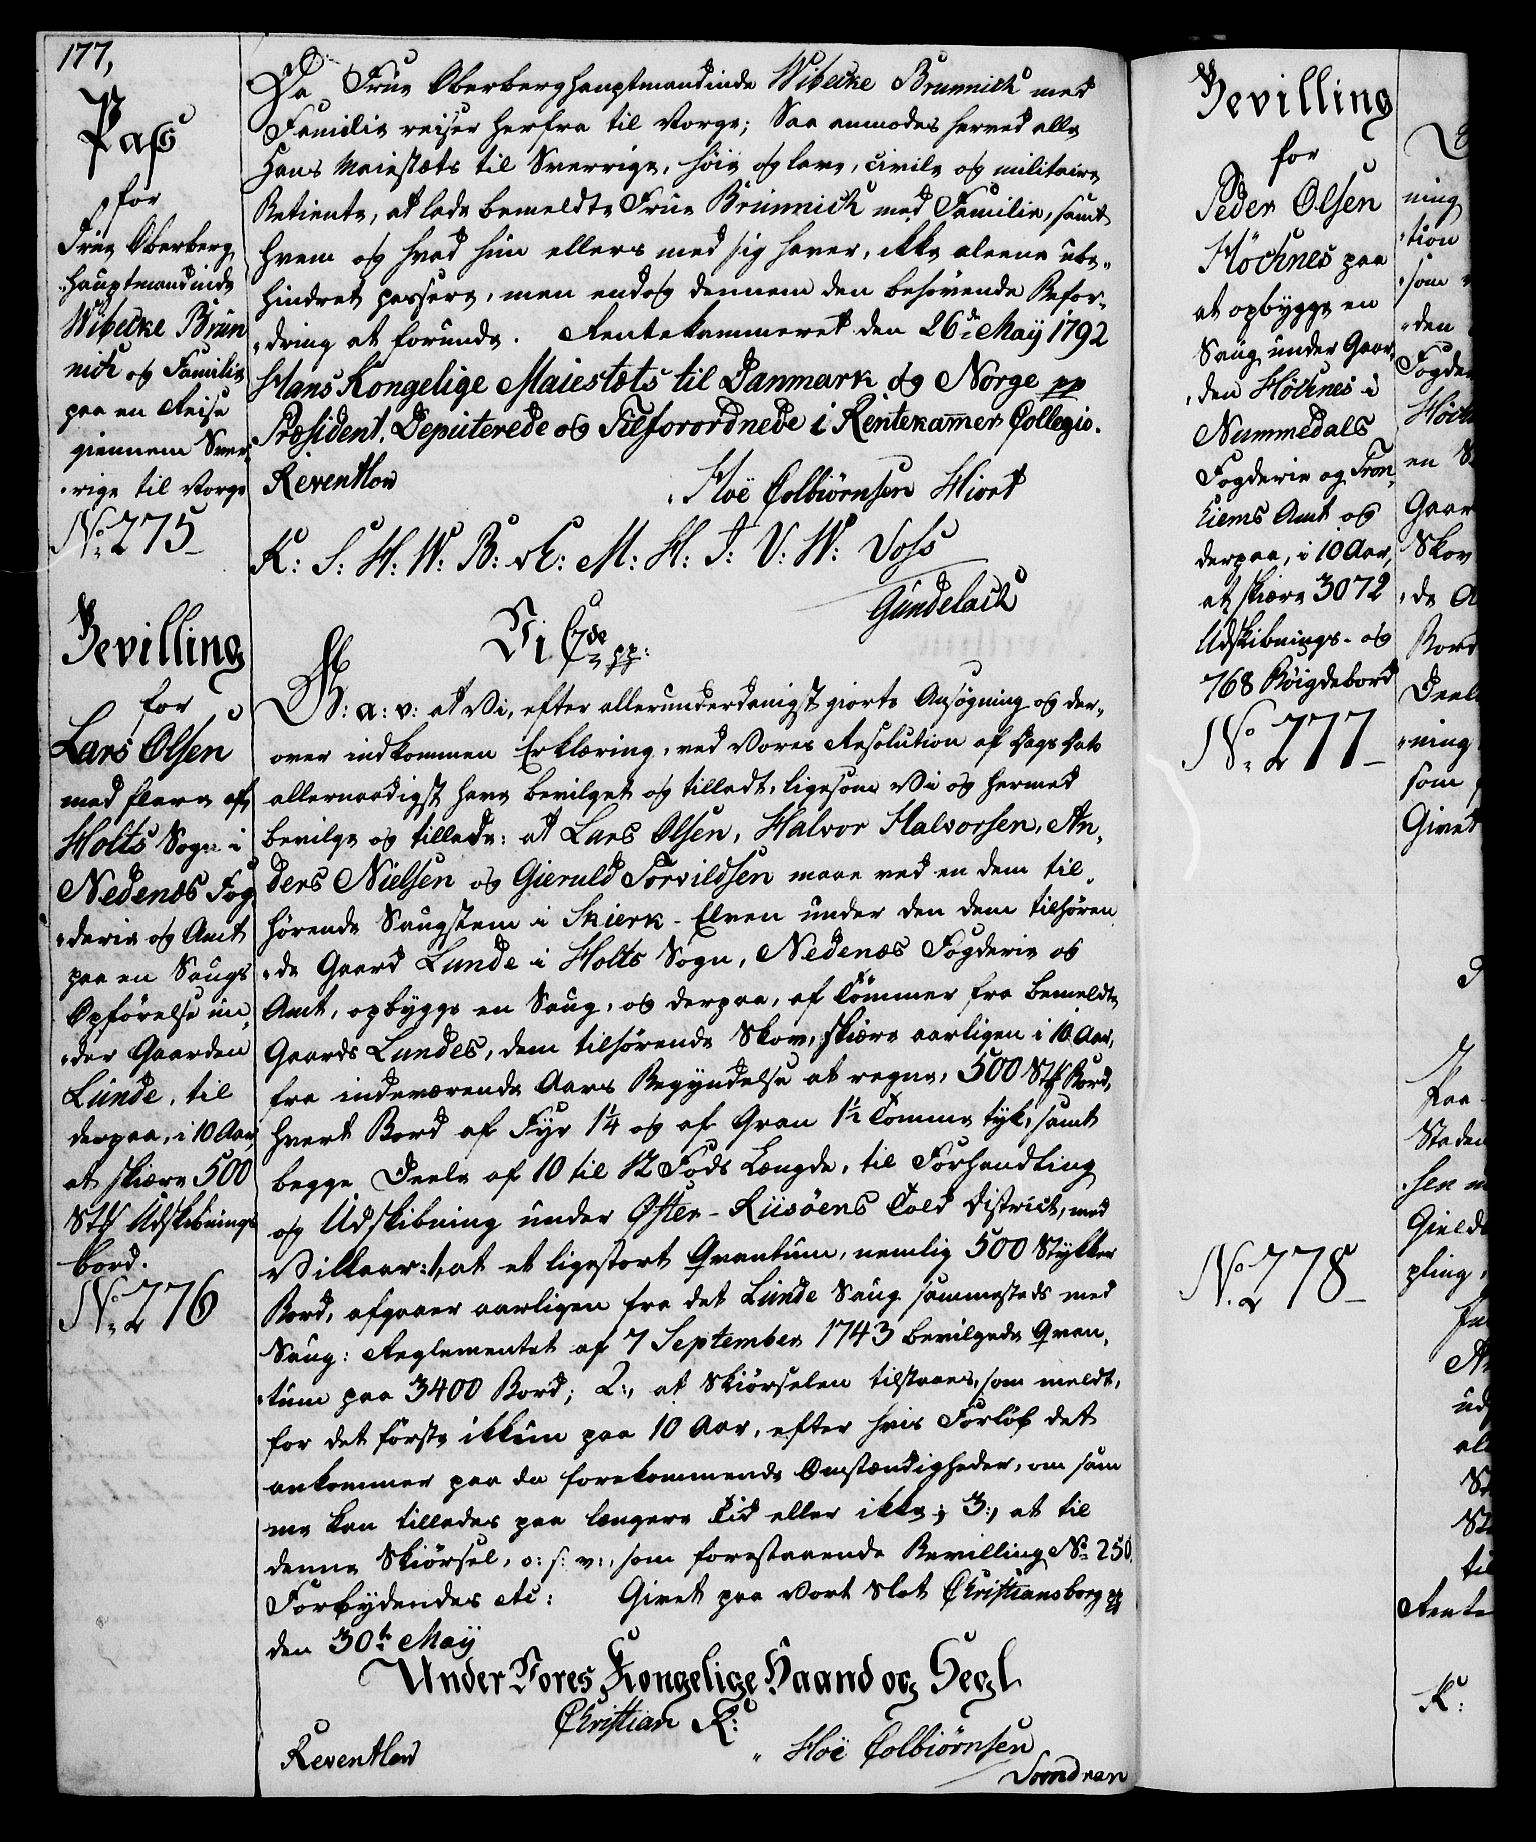 177,
Pass
for
Frue Oberberg
hauptmandinde
Wibecke Brün
nich og Familie
paa en Reise
giennem Sver
rige til Norge
No. 275
Da Frue Oberberghauptmandinde Wibecke Brunnich med
Familie reiser herfra til Norge; Saa anmodes herved alle
Hans Maiestæts til Sverrige, høie og lave, civile og militaire
Betiente, at lade bemeldte Frue Brünnich med Familie, samt
hvem og hvad hun ellers med sig haver, ikke aleene ube„
hindret passere, men endog dennem den behøvende Befor„
„dring at forunde. Rentekammeret den 26de Maÿ 1792
Hans Kongelige Maiestæts til Danmark og Norge pp
Præsident, Deputerede og Tilforordnede i Rentekamer Collegio.
Reventlow
Hoë Colbiørnsen Hiort
K: S: H: W: B: R: M: H: J: V: W: Voss
Gündelach
Bevilling
for
Lars Olsen
med flere af
Holts Sogn i
Nedenæs Fog
„derie og Amt
paa en Saugs
Opførelse un„
„der Gaarden
Lünde, til
derpaa, i 10 Aar
at skiære 500
Stk Udskibnings
bord.
No. 276
Vi C 7de pp:
G: a: v: at Vi, efter allerunderdanigst giorte Ansøgning og der„
over indkommen Erklæring, ved Vores Resolution af Dags Dato
allernaadigst have bevilget og tilladt, ligesom Vi og hermed
bevilge og tillade: at Lars Olsen, Halvor Halvorsen, An„
ders Nielsen og Gieruld Torvildsen maae ved en dem til„
hørende Saugstem i Skierk-Elven under den dem tilhøren
„de Gaard Lunde i Holts Sogn, Nedenæs Fogderie og
Amt, opbygge en Saug, og derpaa, af Tømmer fra bemeldte
Gaards Lundes, dem tilhørende Skov, skiære aarligen i 10 Aar,
fra indeværende Aars Begyndelse at regne, 500 Stk Bord,
hvert Bord af Fyr 1¼ og af Gran 1½ Tomme tyk, samt
begge Deele af 10 til 12 Fods Længde, til Forhandling
og Udskibning under Øster-Riisöens Told District, med
Villaar: 1, at et ligestort Qvantum, nemlig 500 Stykker
Bord, afgaaer aarligen fra det Lünde Saug sammesteds med
Saug: Reglementet af 7 September 1743 bevilgede Qvan„
„tum paa 3400 Bord; 2:, at Skiørselen tilstaaes, som meldt,
for det første ikkun paa 10 Aar, efter hvis Forløb det
ankommer paa de forekommende Omstændigheder, om sam
me kan tillades paa længere Tid eller ikke; 3:, at til
denne Skiørsel, o: s: v:, som forestaaende Bevilling No. 250.
Forbydendes etc: Givet paa Vort Slot Christiansborg pp
den 30te Maÿ
Under Vores Kongelige Haand og Segl
Christian R:
Reventlow
Hoë Colbiørnsen
Bevilling
for
Peder Olsen
Höchnes paa
at opbygge en
Saug under Gaar„
„den Höchnes i
Nummedals
Fogderie og Tron„
hiems Amt og
derpaa, i 10 Aar,
at skiære 3072
Udskibnings- og
768 Bøigdebord
No. 277
No. 278
ning
„tion
„som
„den
Fogder
Höch
en S
Gaar
Skov
„de A
Bord
Deel
„ning
som
Givet
Paa
Staden
„sen
Gield
pling
Rente
K: